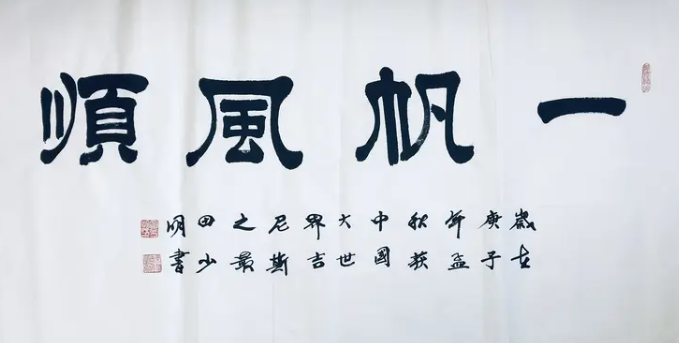 一帆風順
歲在
庚子
年孟
秋获
中國
大世
界吉
尼斯
之最
田少
明書